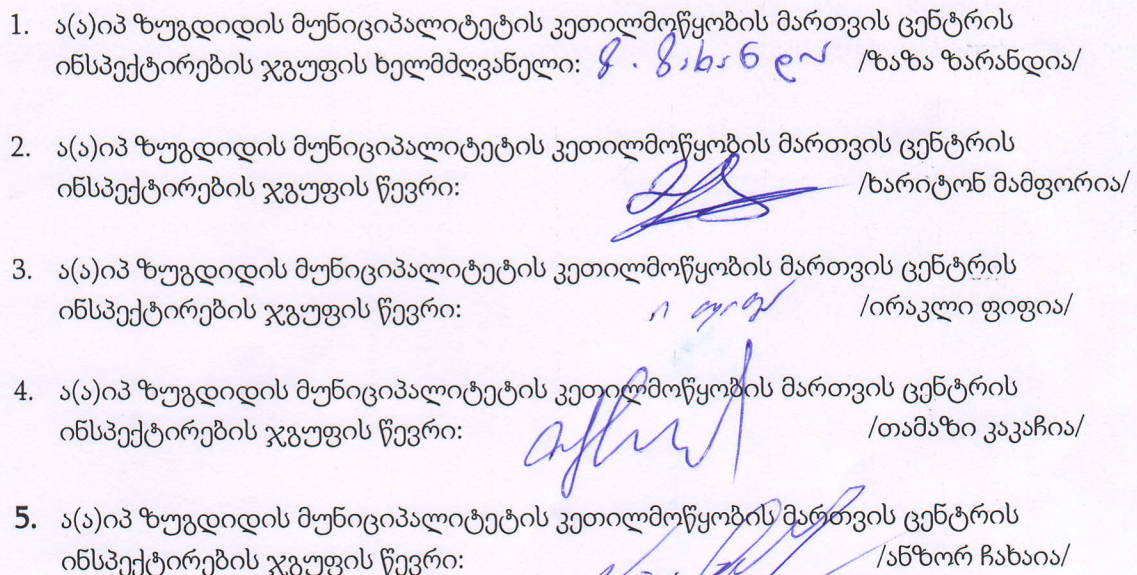 1. ა(ა)იპ ზუგდიდის მუნიციპალიტეტის კეთილმოწყობის მართვის ცენტრის
ინსპექტირების ჯგუფის ხელმძღვანელი: /ზაზა ზარანდია/
2. ა(ა)იპ ზუგდიდის მუნიციპალიტეტის კეთილმოწყობის მართვის ცენტრის
ინსპექტირების ჯგუფის წევრი: /ხარიტონ მამფორია/
3. ა(ა)იპ ზუგდიდის მუნიციპალიტეტის კეთილმოწყობის მართვის ცენტრის
ინსპექტირების ჯგუფის წევრი: /ირაკლი ფიფია/
4. ა(ა)იპ ზუგდიდის მუნიციპალიტეტის კეთილმოწყობის მართვის ცენტრის
ინსპექტირების ჯგუფის წევრი: /თამაზი კაკაჩია/
5. ა(ა)იპ ზუგდიდის მუნიციპალიტეტის კეთილმოწყობის მართვის ცენტრის
ინსპექტირების ჯგუფის წევრი: /ანზორ ჩახაია/